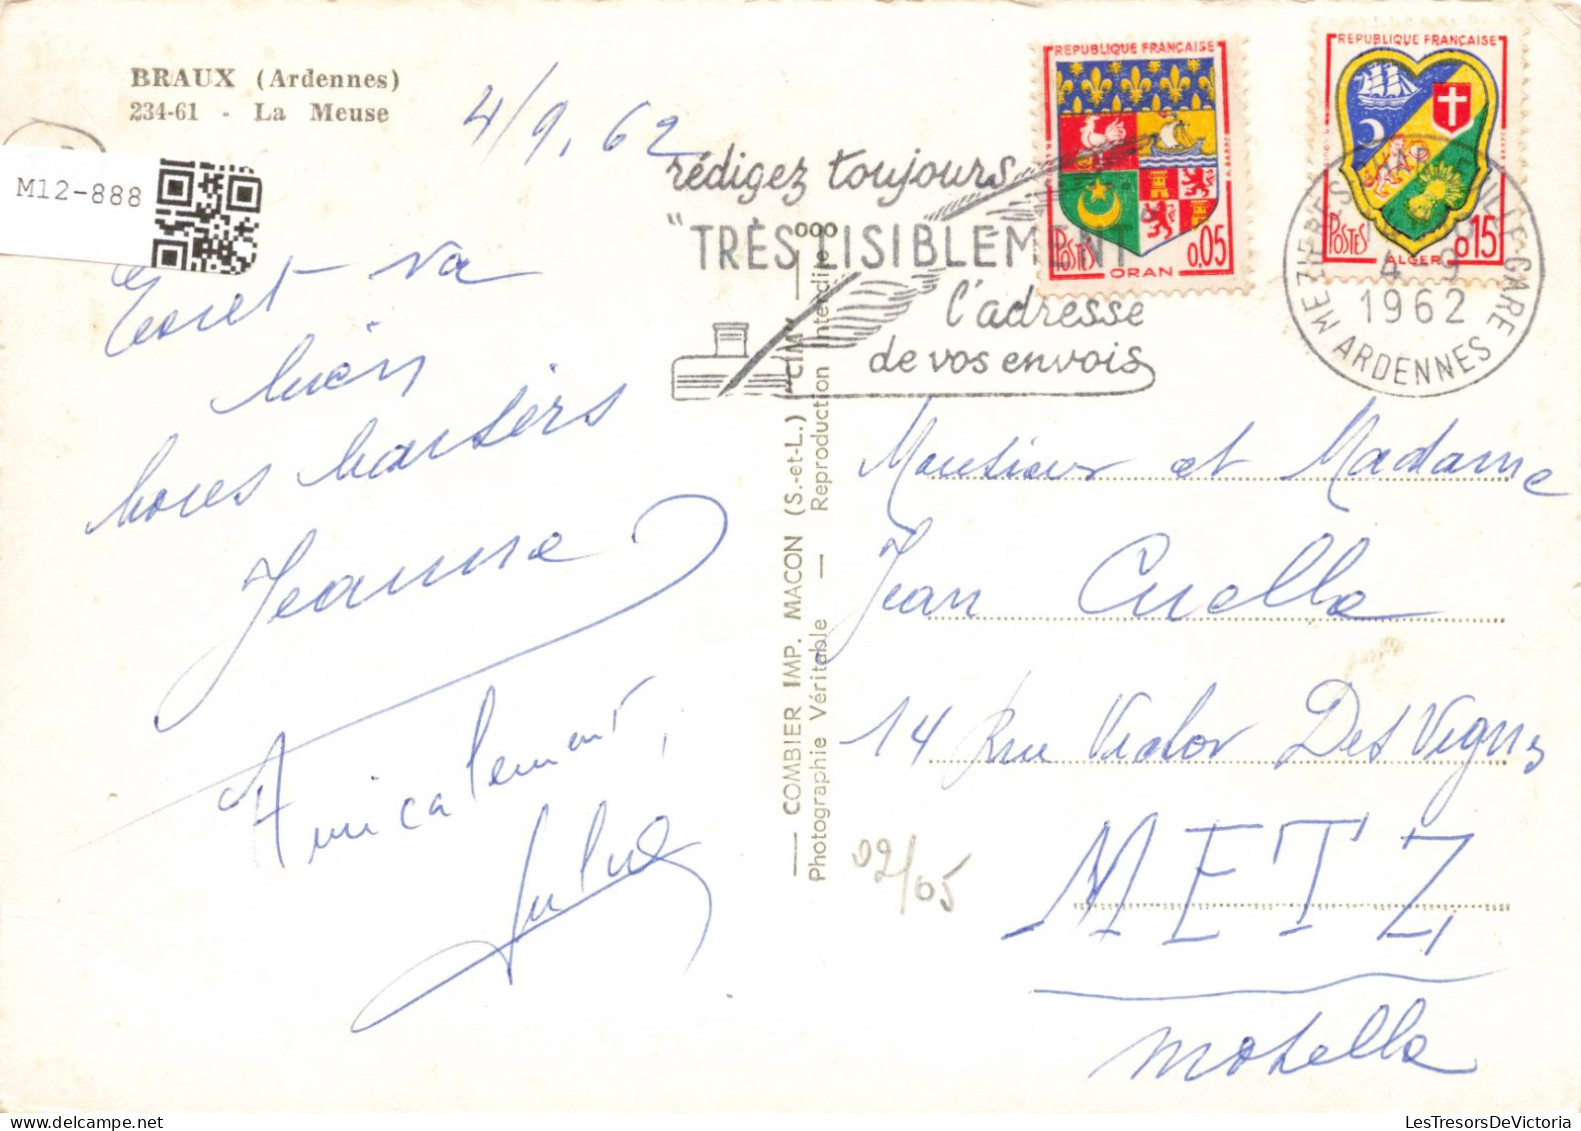 BRAUX (Ardennes)
234-61 - La Meuse
4/9.62
M12-888
Tout va
bien
bons baisers
Jeanne
Amicalement,
rédigez toujours
"TRÈS LISIBLEMENT"
l'adresse
de vos envois
REPUBLIQUE FRANÇAISE
POSTES
0,05
ORAN
REPUBLIQUE FRANÇAISE
POSTES
0,15
ALGER
MEZIERES-CHARLEVILLE-GARE
4-9
1962
ARDENNES
COMBIER IMP. MACON (S.-et-L.) "CIM"
Photographie Véritable — Reproduction Interdite
Monsieur et Madame
Jean Cuella
14 Rue Victor Des Vignes
METZ
Moselle
02/65
LesTresorsDeVictoria
LesTresorsDeVictoria.com